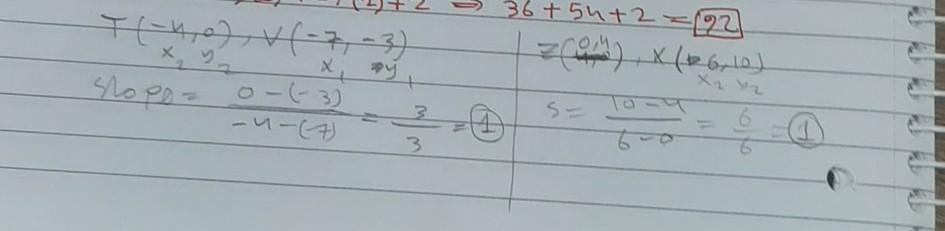 (2)+2 ⇒ 36+54+2=92
T(-4,0), V(-7,-3)
x₂ y₂ x₁ y₁
Slope = 0-(-3) / -4-(-7) = 3/3 = 1
Z(0,4), X(6,10)
x₂ y₂
S = 10-4 / 6-0 = 6/6 = 1